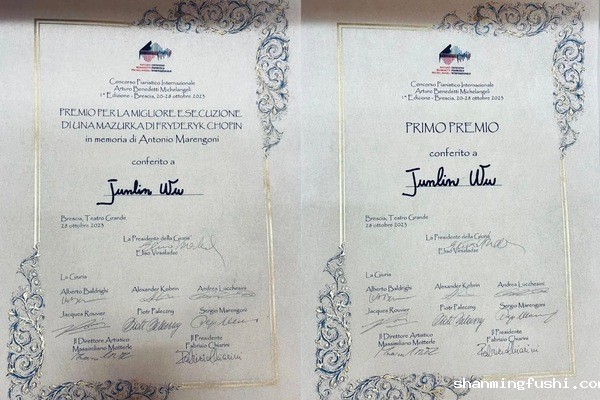 Concorso Pianistico Internazionale
Arturo Benedetti Michelangeli
1ª Edizione - Brescia, 20-28 ottobre 2023
PREMIO PER LA MIGLIORE ESECUZIONE
DI UNA MAZURKA DI FRYDERYK CHOPIN
in memoria di Antonio Marengoni
conferito a
Junlin Wu
Brescia, Teatro Grande
28 ottobre 2023
La Presidente della Giuria
Eliso Virsaladze
La Giuria
Alberto Baldrighi Alexander Kobrin Andrea Lucchesini
Jacques Rouvier Piotr Paleczny Sergio Marengoni
Il Direttore Artistico Il Presidente
Massimiliano Motterle Fabrizio Chiarini
Concorso Pianistico Internazionale
Arturo Benedetti Michelangeli
1ª Edizione - Brescia, 20-28 ottobre 2023
PRIMO PREMIO
conferito a
Junlin Wu
Brescia, Teatro Grande
28 ottobre 2023
La Presidente della Giuria
Eliso Virsaladze
La Giuria
Alberto Baldrighi Alexander Kobrin Andrea Lucchesini
Jacques Rouvier Piotr Paleczny Sergio Marengoni
Il Direttore Artistico Il Presidente
Massimiliano Motterle Fabrizio Chiarini
shanmingfushi.com